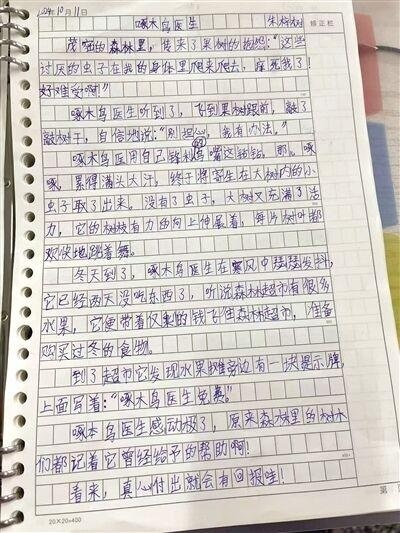 2024年10月11日
啄木鸟医生 朱梓树 修正栏
茂密的森林里，传来了果树的抱怨：“这些
讨厌的虫子在我的身体里爬来爬去，痒死我了！
好难受啊！”
啄木鸟医生听到了，飞到果树跟前，敲了
敲树干，自信地说：“别担心，我有办法。”
啄木鸟医用自己锋利的鸟嘴这钻钻，那
啄，累得满头大汗，终于将寄生在大树内的小
虫子取了出来。没有了虫子，大树又充满了活
力，它的树枝有力的向上伸展着，每片树叶都
欢快地跳着舞。
冬天到了，啄木鸟医生在寒风中瑟瑟发抖，
它已经两天没吃东西了，听说森林超市有很多
水果，它便带着仅剩的钱飞往森林超市，准备
购买过冬的食物。
到了超市它发现水果摊旁边有一块提示牌，
上面写着：“啄木鸟医生免费。”
啄木鸟医生感动极了，原来森林里的树木
们都记着它曾经给予的帮助啊！
看来，真心付出就会有回报哇！
20×20=400
第